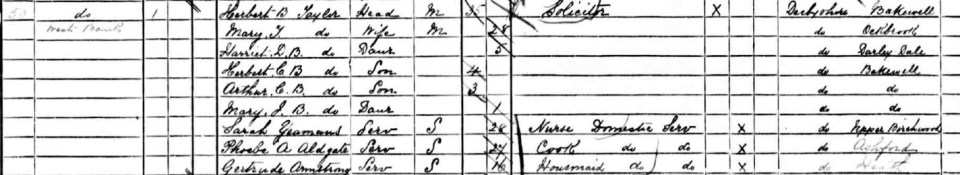 53 do 1 Herbert B Taylor Head M 35 Solicitor X Derbyshire Bakewell
West Bank Mary T. do Wife M 28 do Ockbrook
Harriet D. B. do Daur 5 do Darley Dale
Herbert C B do Son 4 do Bakewell
Arthur C. B do Son 3 do do
Mary J. B. do Daur 1 do do
Sarah Yeomans Serv S 28 Nurse Domestic Serv X do Upper Birchwood
Phoebe A Aldgate Serv S 27 Cook do do X do Ashford
Gertrude Armstrong Serv S 16 Housmaid do do X do